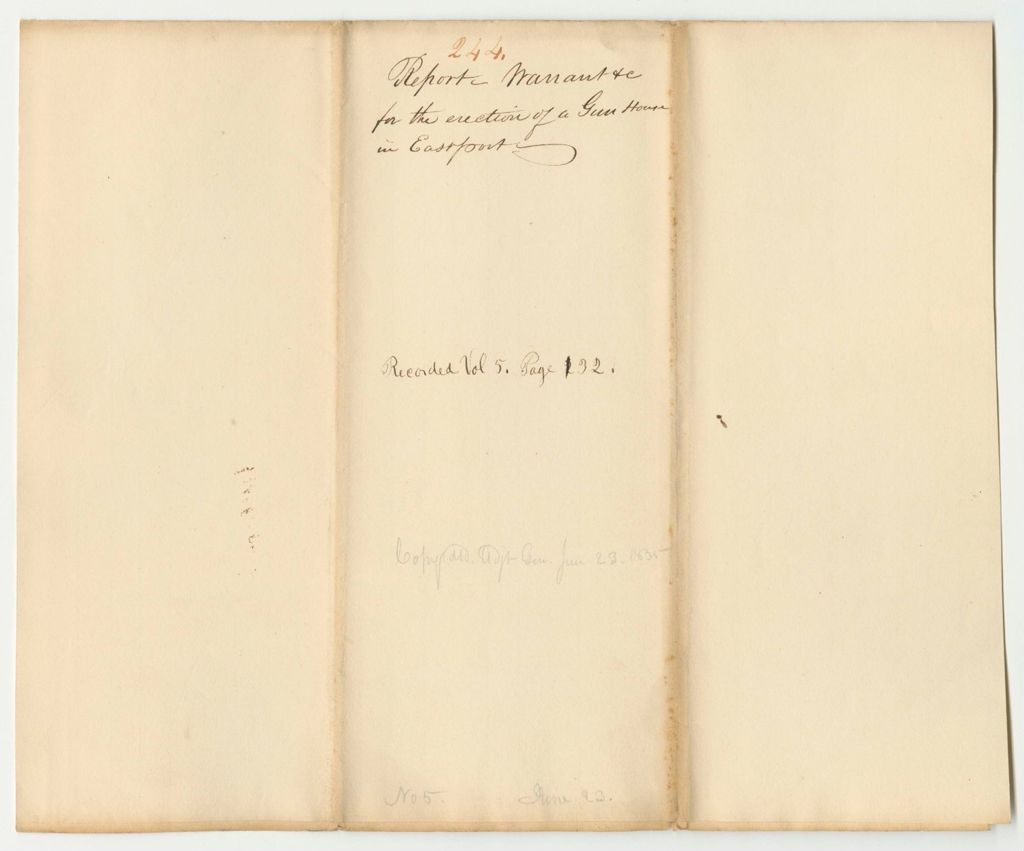 244.
Report Warrant &c
for the erection of a Gun House
in Eastport
Recorded Vol 5. Page 132.
Copy Adjt Gen. June 23. 1835
No 5. June 23.